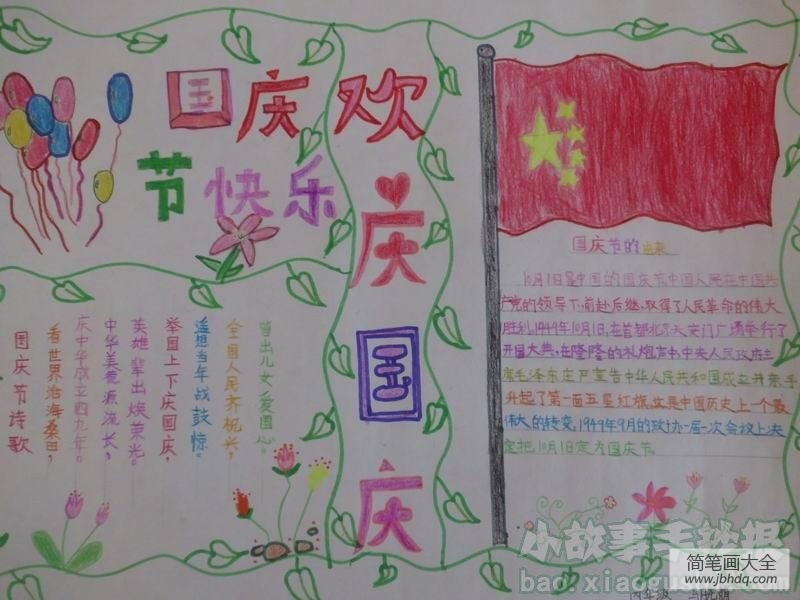 国庆
节快乐
欢
庆
国
庆
国庆节的由来
10月1日是中国的国庆节,中国人民在中国共
产党的领导下,前赴后继,取得了人民革命的伟大
胜利,1949年10月1日,在首都北京天安门广场举行了
开国大典,在隆隆的礼炮声中,中央人民政府主
席毛泽东庄严宣告中华人民共和国成立,并亲手
升起了第一面五星红旗,这是中国历史上一个最
伟大的转变,1949年9月的政协一届一次会议上决
定把10月1日定为国庆节
国庆节诗歌
看世界沧海桑田,
庆中华成立四九年。
中华美誉源流长,
英雄辈出焕荣光。
举国上下庆国庆,
遥想当年战鼓惊。
全国人民齐祝兴,
儿女爱国心。
小故事手抄报
bao.xiaogus
简笔画大全
www.jbhdq.com
四年级